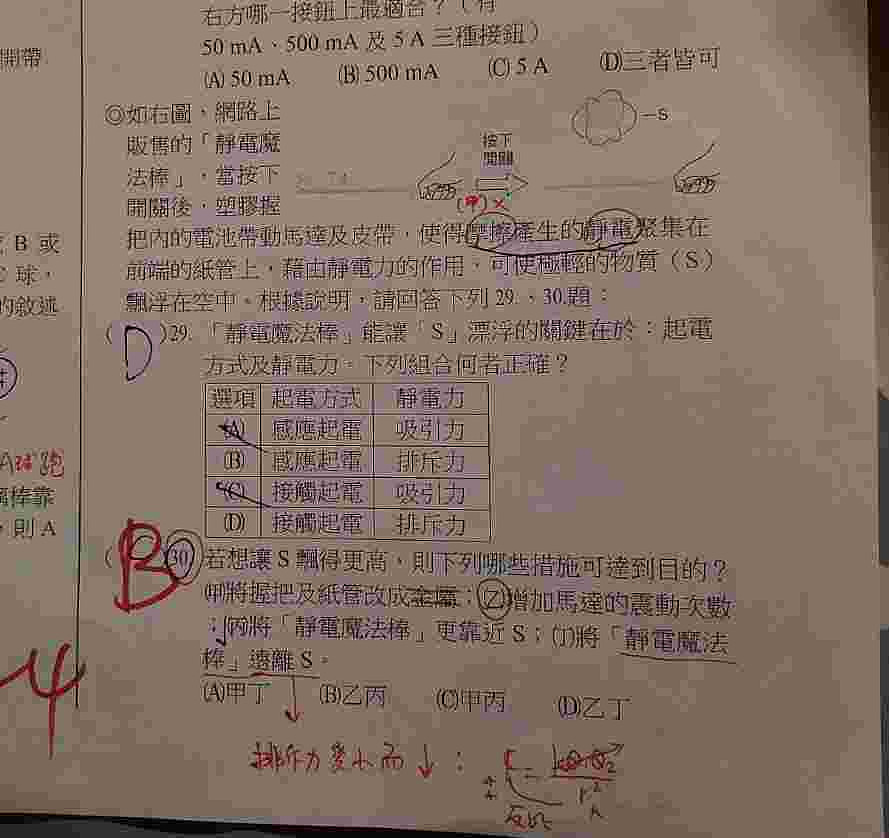 右方哪一接鈕上最適合？（有
50 mA、500 mA 及 5 A 三種接鈕）
(A) 50 mA (B) 500 mA (C) 5 A (D)三者皆可
開帶
◎如右圖，網路上
販售的「靜電魔
法棒」，當按下
開關後，塑膠握
S
按下
開關
(甲)×
把內的電池帶動馬達及皮帶，使得摩擦產生的靜電聚集在
前端的紙管上，藉由靜電力的作用，可使極輕的物質（S）
飄浮在空中。根據說明，請回答下列 29.、30.題：
B 或
球，
的敘述
( D )29. 「靜電魔法棒」能讓「S」漂浮的關鍵在於：起電
方式及靜電力。下列組合何者正確？
選項 起電方式 靜電力
(A) 感應起電 吸引力
(B) 感應起電 排斥力
(C) 接觸起電 吸引力
(D) 接觸起電 排斥力
A球跑
棒靠
，則 A
( B )30. 若想讓 S 飄得更高，則下列哪些措施可達到目的？
(甲)將握把及紙管改成金屬；(乙)增加馬達的震動次數
；(丙)將「靜電魔法棒」更靠近 S；(丁)將「靜電魔法
棒」遠離 S。
(A)甲丁 (B)乙丙 (C)甲丙 (D)乙丁
4
排斥力變小而↓：
反比